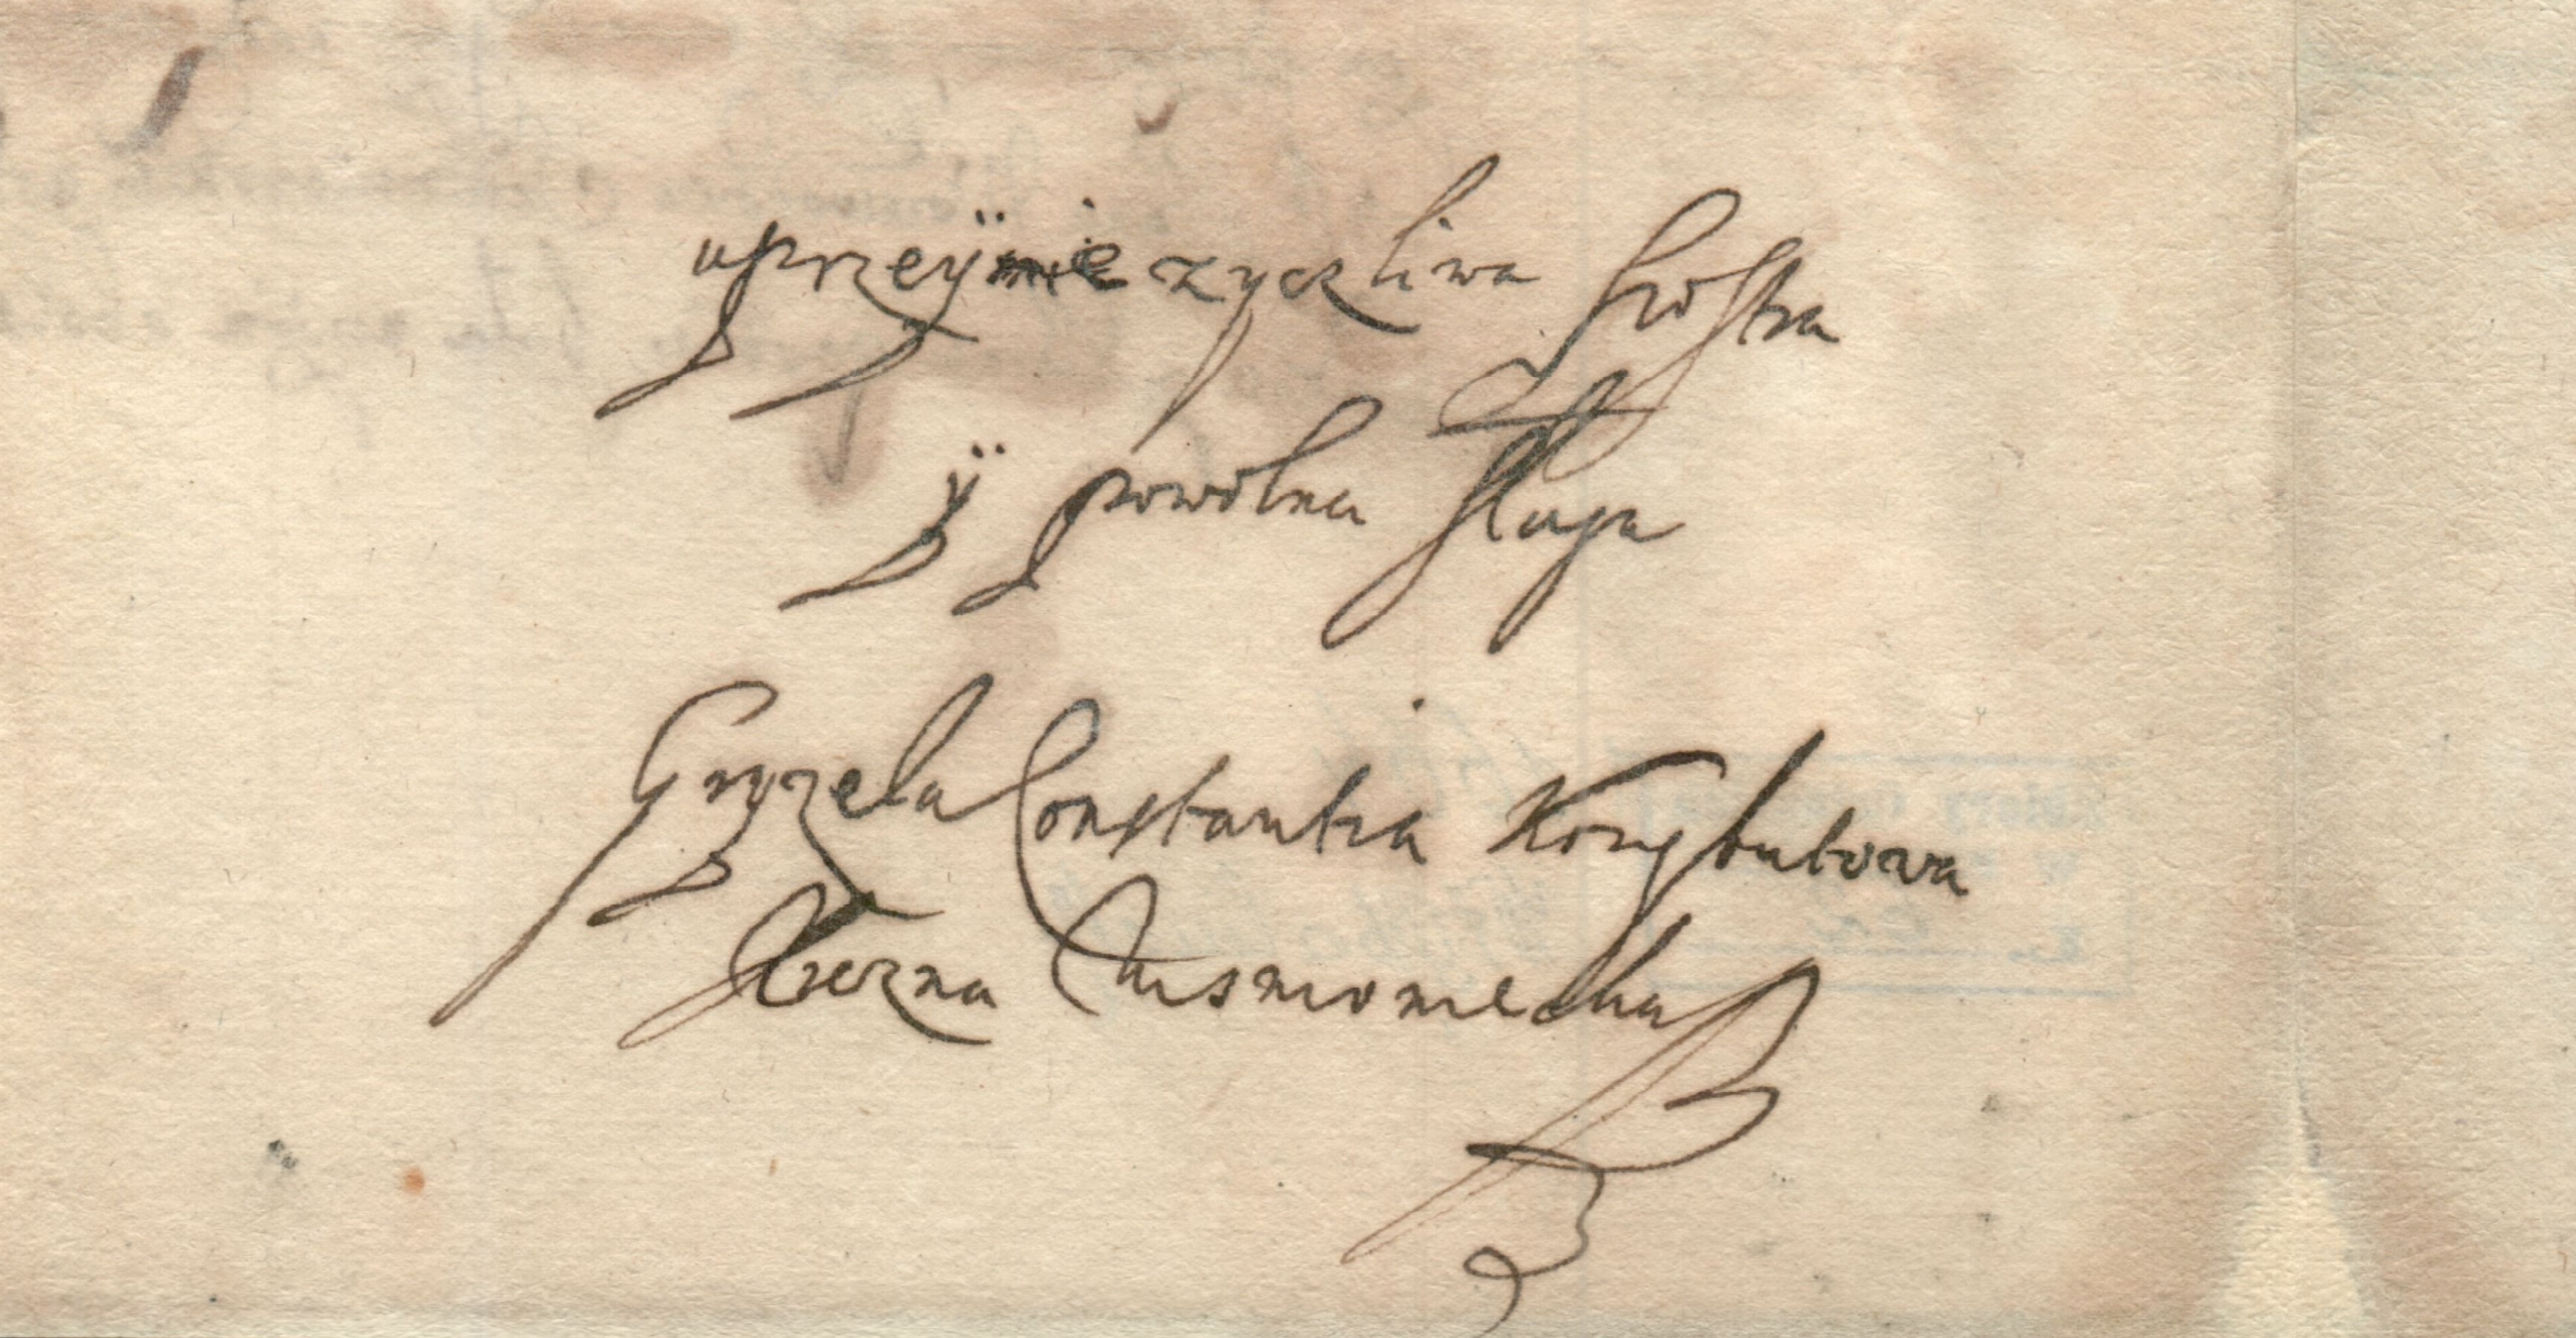 uprzeÿmie zyczliwa siostra
ÿ powolna sługa
Gryzela Constantia Korybutowa
Xiezna Wisniowiecka